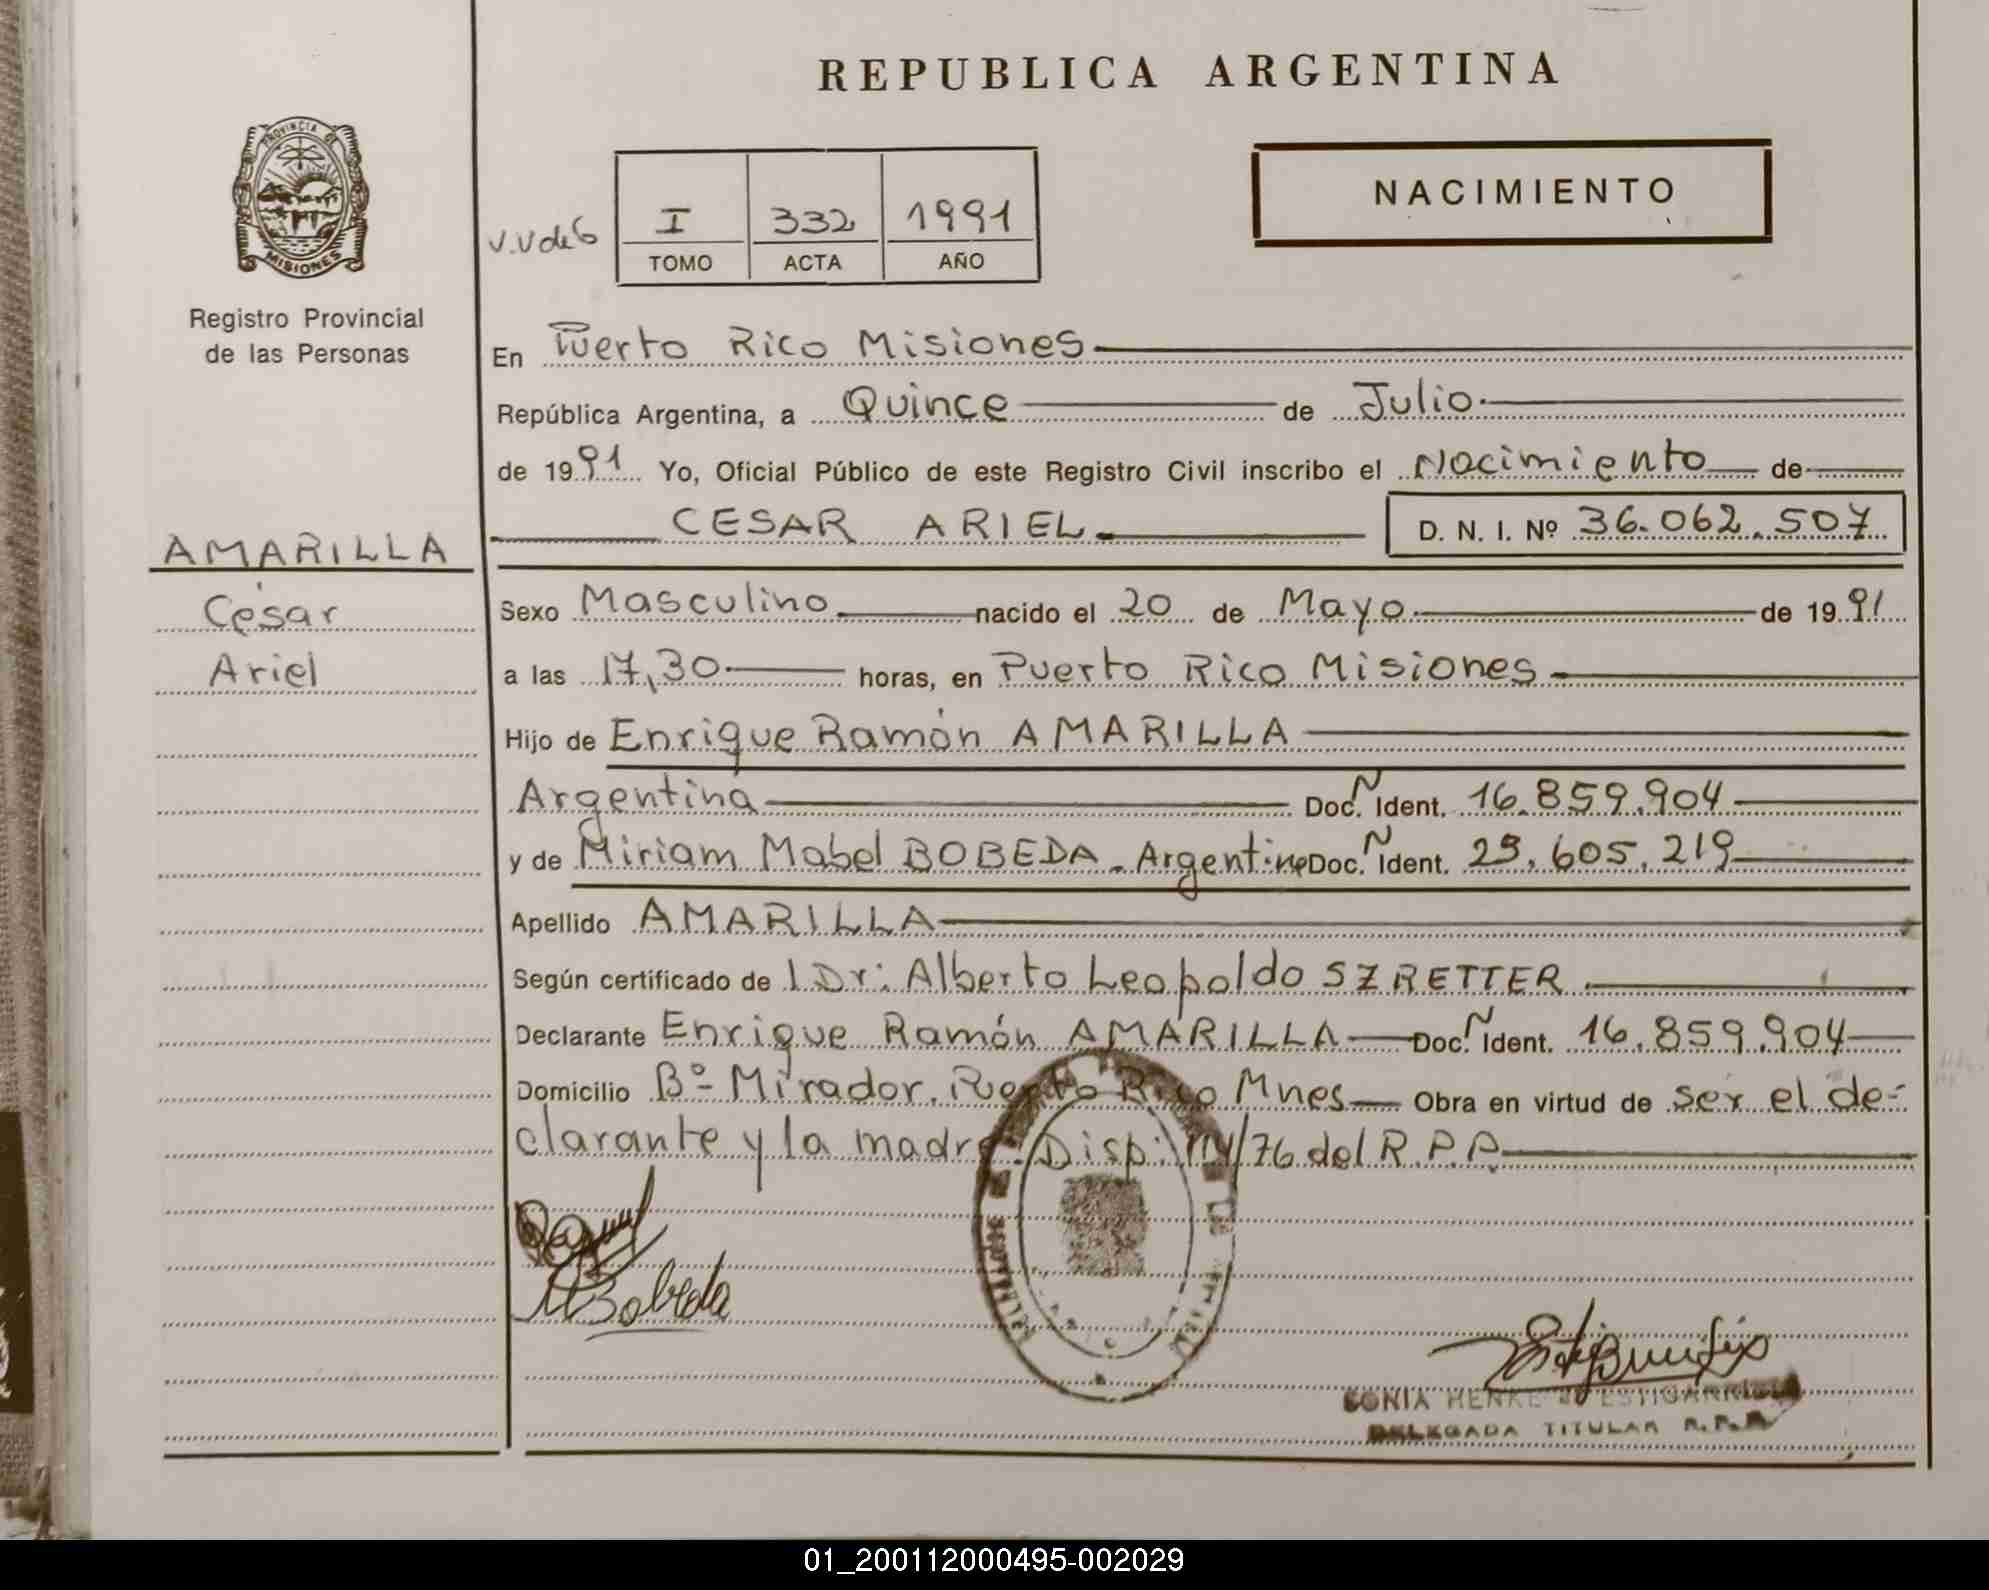 REPUBLICA ARGENTINA
PROVINCIA DE
MISIONES
Registro Provincial
de las Personas
V.V de 6
I 332 1991
TOMO ACTA AÑO
NACIMIENTO
En Puerto Rico Misiones
República Argentina, a Quince de Julio
de 1991 Yo, Oficial Público de este Registro Civil inscribo el Nacimiento de
CESAR ARIEL. D. N. I. Nº 36.062.507
AMARILLA
César
Ariel
Sexo Masculino nacido el 20 de Mayo de 1991
a las 17,30 horas, en Puerto Rico Misiones
Hijo de Enrique Ramón AMARILLA
Argentina Doc. N Ident. 16.859.904
y de Miriam Mabel BOBEDA. Argentina Doc. N Ident. 23.605.219
Apellido AMARILLA
Según certificado de l Dr: Alberto Leopoldo SZRETTER
Declarante Enrique Ramón AMARILLA Doc. N Ident. 16.859.904
Domicilio Bº Mirador. Puerto Rico Mnes Obra en virtud de ser el de-
clarante y la madre. Disp: /76 del R.P.P.
Bobeda
SONIA HENKE
DELEGADA TITULAR R.P.P.
01_200112000495-002029